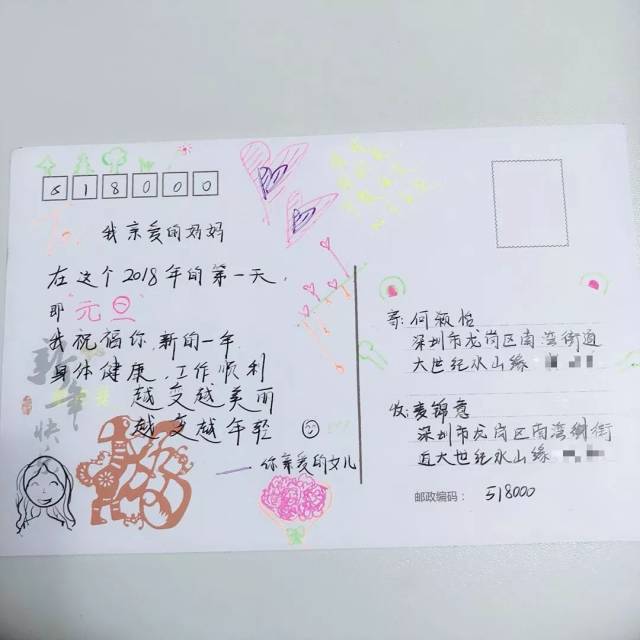 518000
我亲爱的妈妈
在这个2018年的第一天,
即"元旦"
我祝福你,新的一年
身体健康,工作顺利
越变越美丽
越变越年轻
——你亲爱的女儿
新年快
寄:何颖怡
深圳市龙岗区南湾街道
大世纪水山缘
收:麦锦意
深圳市龙岗区南湾街街
近大世纪水山缘
邮政编码: 518000